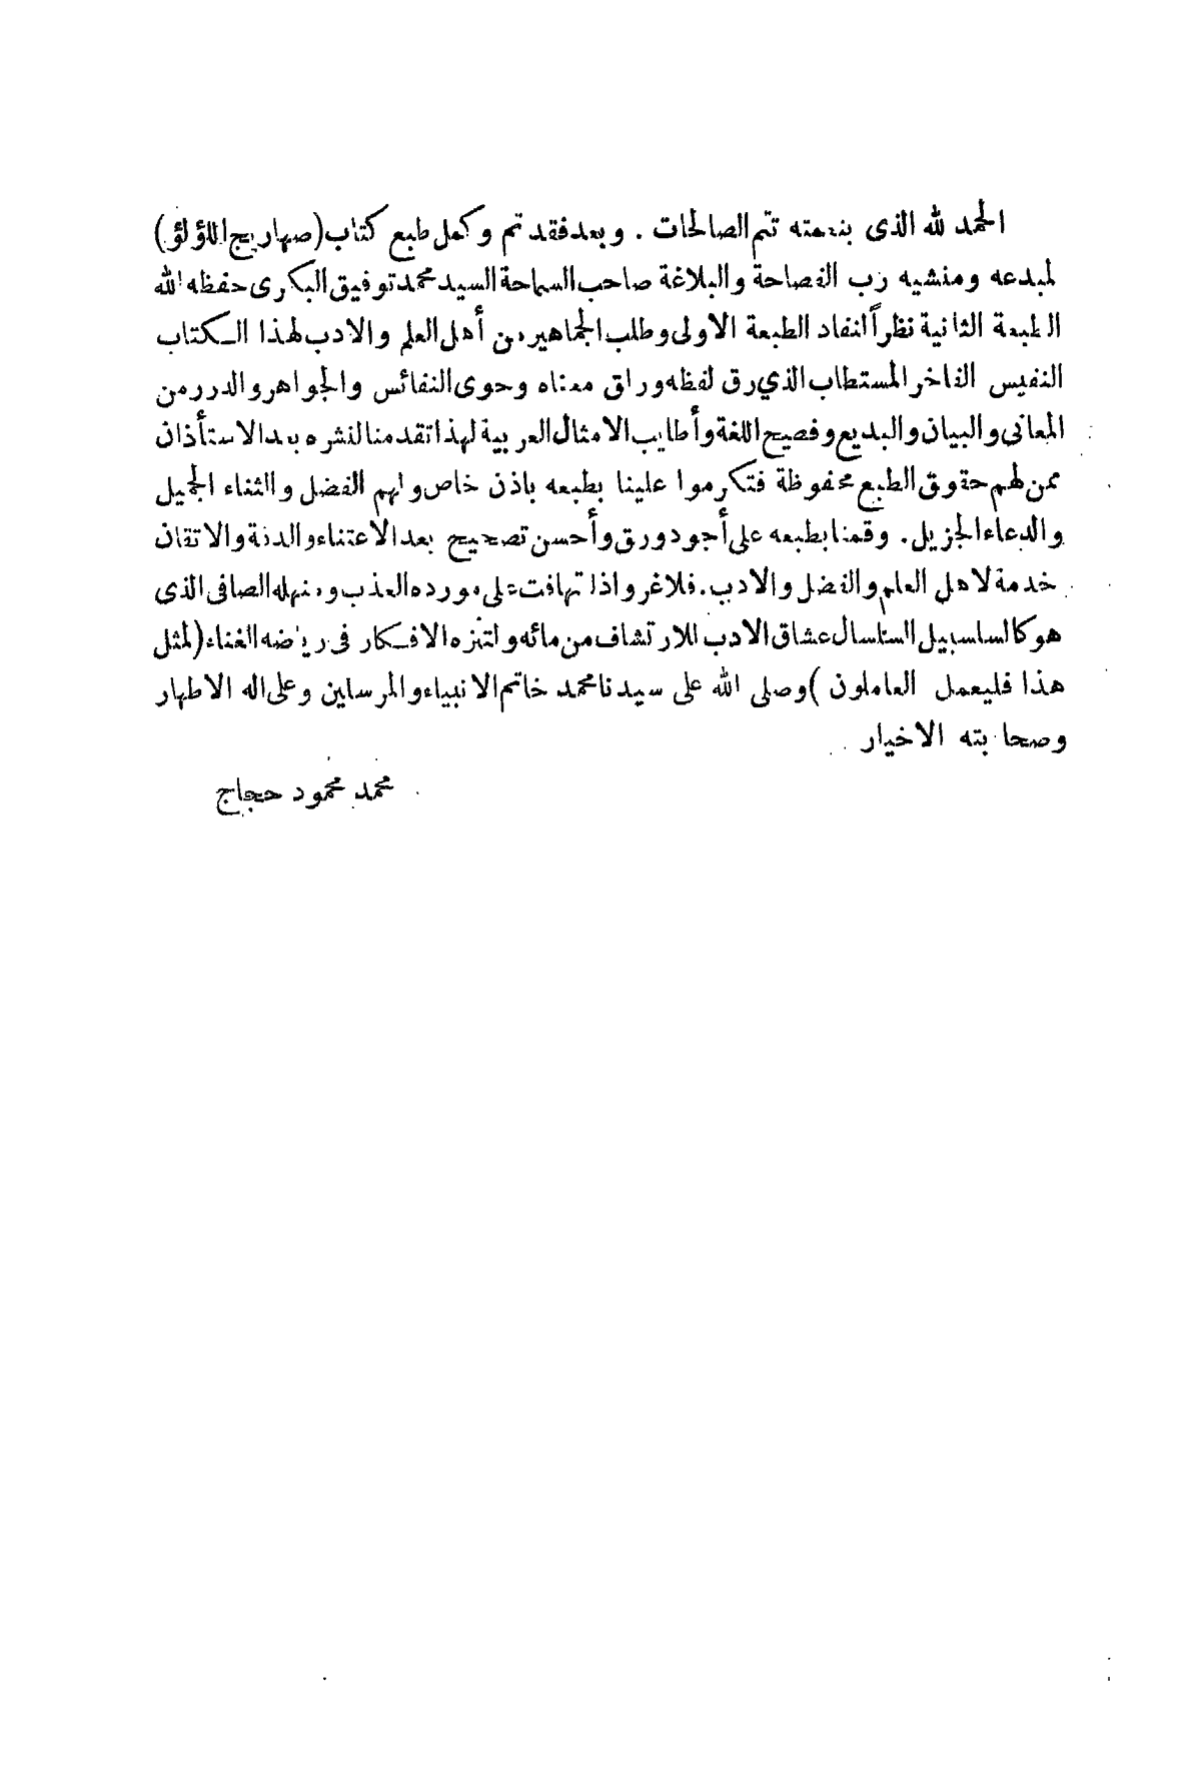 الحمد لله الذى بنعمته تتم الصالحات . وبعد فقد تم وكمل طبع كتاب (صهاريج اللؤلؤ)
لمبدعه ومنشيه رب الفصاحة والبلاغة صاحب السماحة السيد محمد توفيق البكرى حفظه الله
الطبعة الثانية نظراً لنفاد الطبعة الاولى وطلب الجماهير من أهل العلم والادب لهذا الكتاب
النفيس الفاخر المستطاب الذي رق لفظه وراق معناه وحوى النفائس والجواهر والدرر من
المعانى والبيان والبديع وفصيح اللغة وأطايب الامثال العربية لهذا تقدمنا لنشره بعد الاستأذان
ممن لهم حقوق الطبع محفوظة فتكرموا علينا بطبعه باذن خاص ولهم الفضل والثناء الجميل
والدعاء الجزيل . وقمنا بطبعه على أجود ورق وأحسن تصحيح بعد الاعتناء والدقة والاتقان
خدمة لاهل العلم والفضل والادب . فلا غرو اذا تهافت على مورده العذب ومنهله الصافى الذى
هو كالسلسبيل السلسال عشاق الادب للارتشاف من مائه ولتنزه الافكار فى رياضه الغناء (لمثل
هذا فليعمل العاملون) وصلى الله على سيدنا محمد خاتم الانبياء والمرسلين وعلى اله الاطهار
وصحابته الاخيار
محمد محمود حجاج